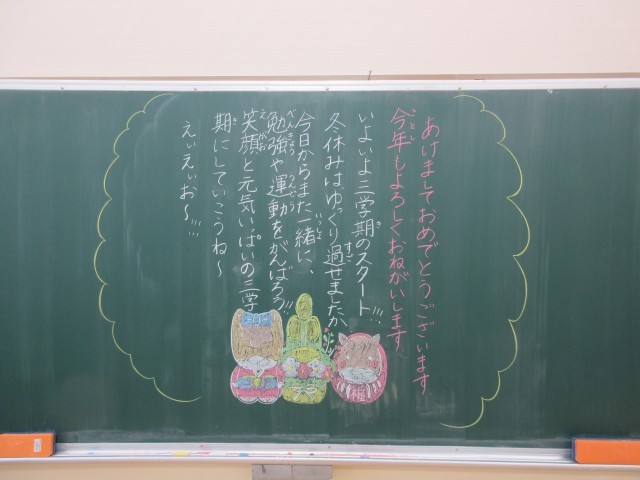 あけましておめでとうございます
今年もよろしくおねがいします
いよいよ三学期のスタート!!!
冬休みは、ゆっくり過せましたか
今日からまた一緒に、
勉強や運動をがんばろう!!!
笑顔と元気いっぱいの三学
期にしていこうね〜
えぃえぃお〜!!!
福